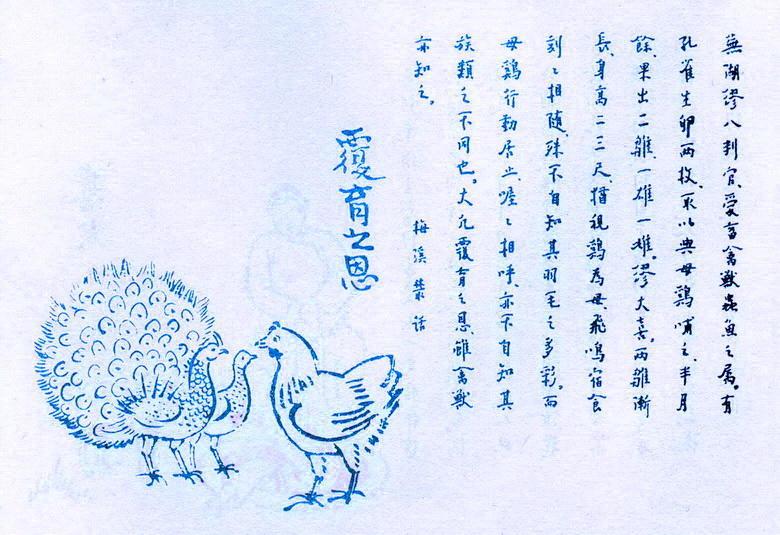 蕪湖繆八判官、愛畜禽獸蟲魚之屬。有
孔雀生卵兩枚、取以與母鷄哺之、半月
餘、果出二雛、一雄一雌。繆大喜。兩雛漸
長、身高二三尺、猶視鷄為母、飛鳴宿食
刻刻相隨、殊不自知其羽毛之多彩。而
母鷄行動居止、喔喔相呼、亦不自知其
族類之不同也。大凡覆育之恩、雖禽獸
亦知之。
梅溪叢話
覆育之恩